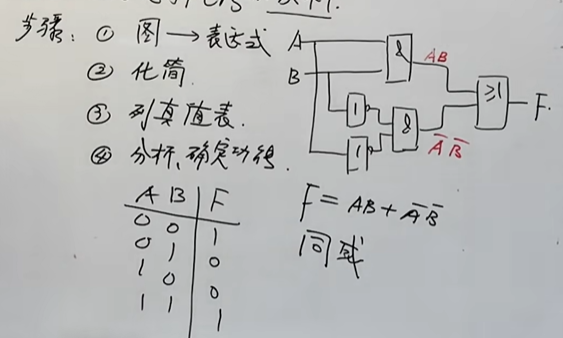 步骤: ① 图 → 表达式
② 化简.
③ 列真值表.
④ 分析、确定功能.
A
B
&
AB
1
1
&
A̅ B̅
≥1
F.
A B F
0 0 1
0 1 0
1 0 0
1 1 1
F = AB + A̅ B̅
同或